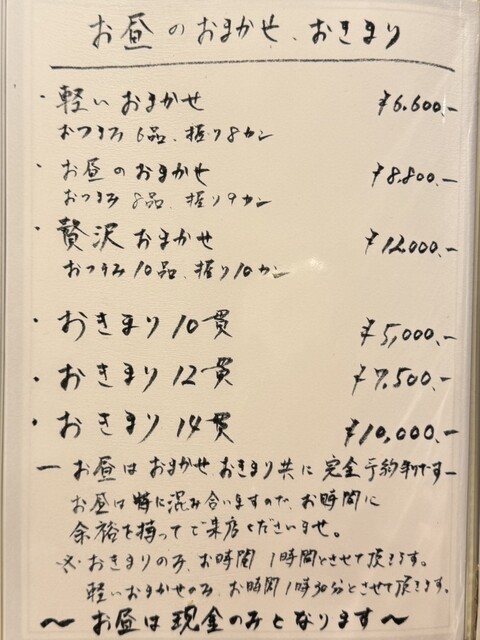 お昼のおまかせ、おきまり
・軽いおまかせ ¥6.600.-
おつまみ6品、握り8カン
・お昼のおまかせ ¥8.800.-
おつまみ8品、握り9カン
・贅沢おまかせ ¥12.000.-
おつまみ10品、握り10カン
・おきまり10貫 ¥5,000.-
・おきまり12貫 ¥7.500.-
・おきまり14貫 ¥10,000.-
ー お昼はおまかせおきまり共に完全予約制です ー
お昼は特に混み合いますので、お時間に
余裕を持ってご来店くださいませ。
※おきまりのみ、お時間1時間とさせて頂きます。
軽いおまかせのみ、お時間1時30分とさせて頂きます。
〜 お昼は現金のみとなります 〜